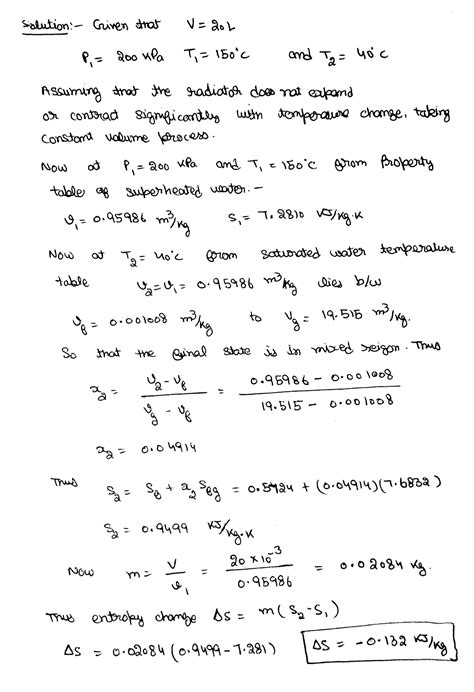 Solution:- Given that V = 20L
P₁ = 200 kPa T₁ = 150°C and T₂ = 40°C
Assuming that the radiator does not expand
or contract significantly with temperature change, taking
Constant volume process.
Now at P₁ = 200 kPa and T₁ = 150°C from Property
table of superheated water:-
v₁ = 0.95986 m³/kg S₁ = 7.2810 kJ/kg·K
Now at T₂ = 40°C from saturated water temperature
table v₂ = v₁ = 0.95986 m³/kg lies b/w
v_f = 0.001008 m³/kg to v_g = 19.515 m³/kg.
So that the final state is in mixed reigon. Thus
x₂ = (v₂ - v_f)/(v_g - v_f) = (0.95986 - 0.001008)/(19.515 - 0.001008)
x₂ = 0.04914
Thus S₂ = S_f + x₂ S_fg = 0.5724 + (0.04914)(7.6832)
S₂ = 0.9499 kJ/kg·K
Now m = V/v₁ = (20 × 10⁻³)/0.95986 = 0.02084 kg.
Thus entropy change ΔS = m(S₂-S₁)
ΔS = 0.02084 (0.9499 - 7.281) ΔS = -0.132 kJ/kg